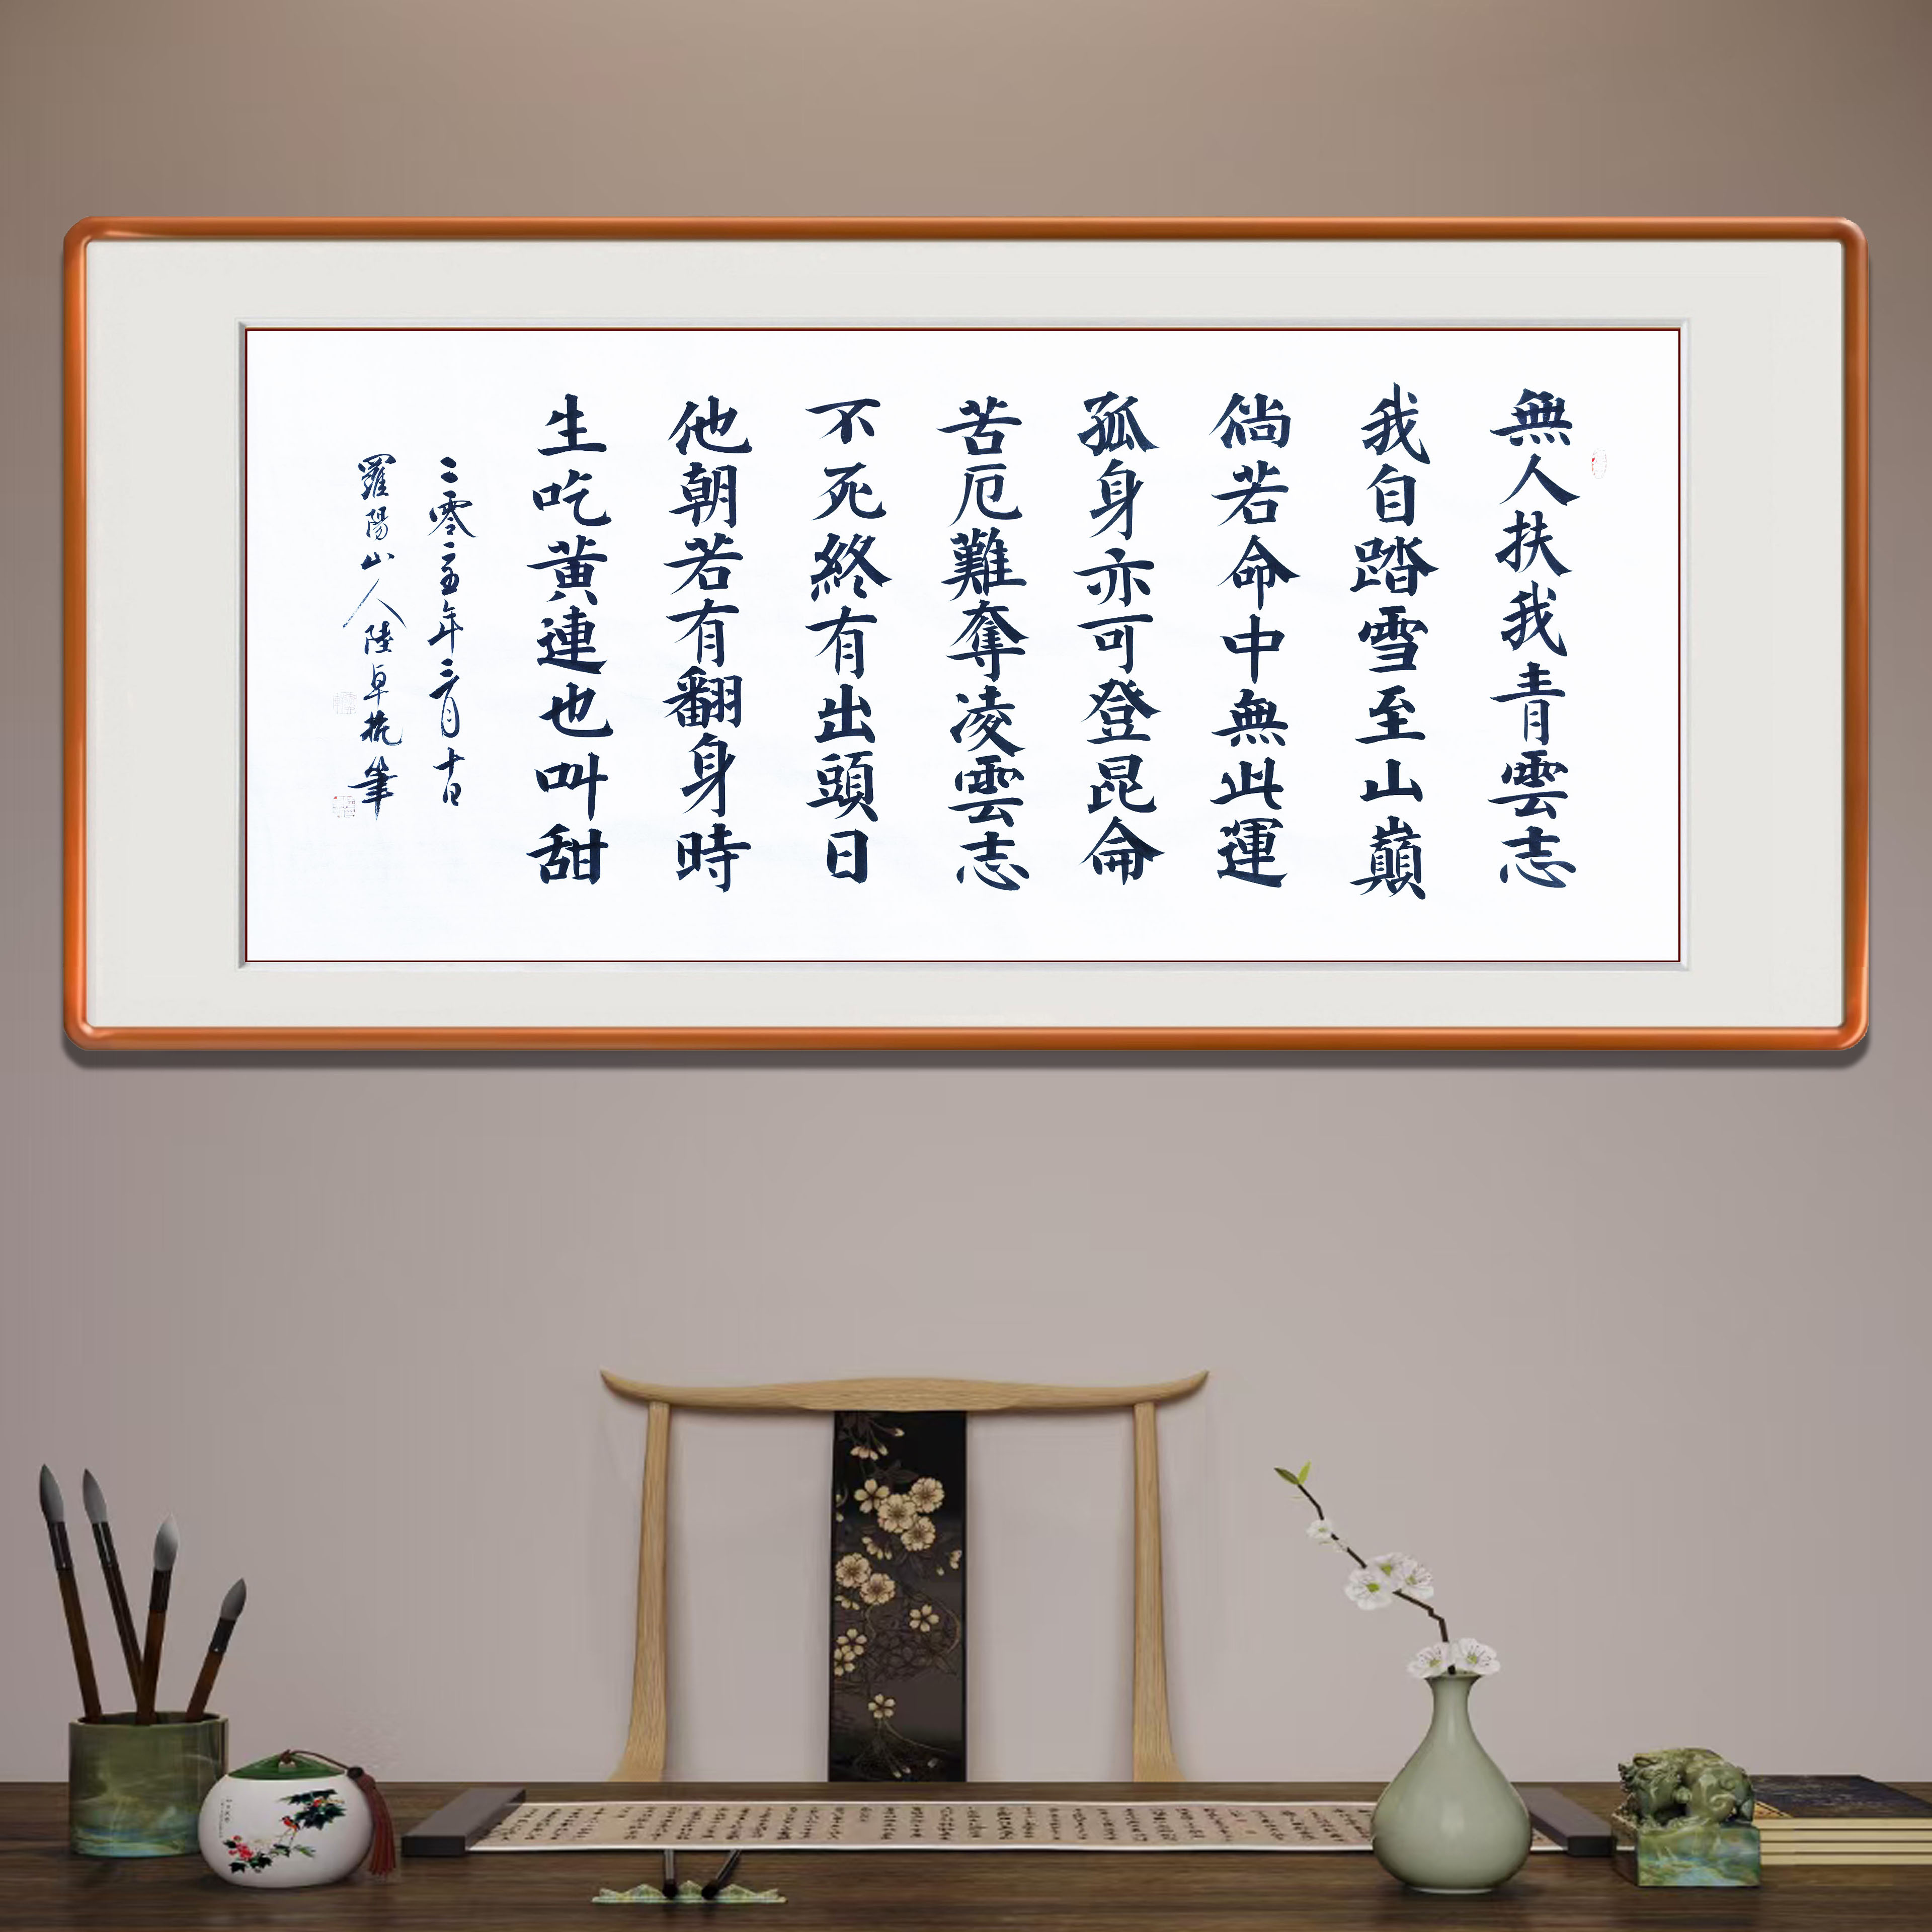 無人扶我青雲志
我自踏雪至山巔
倘若命中無此運
孤身亦可登昆侖
苦厄難奪凌雲志
不死終有出頭日
他朝若有翻身時
生吃黄連也叫甜
二零二五年三月十日
羅陽山人陸卓杭筆